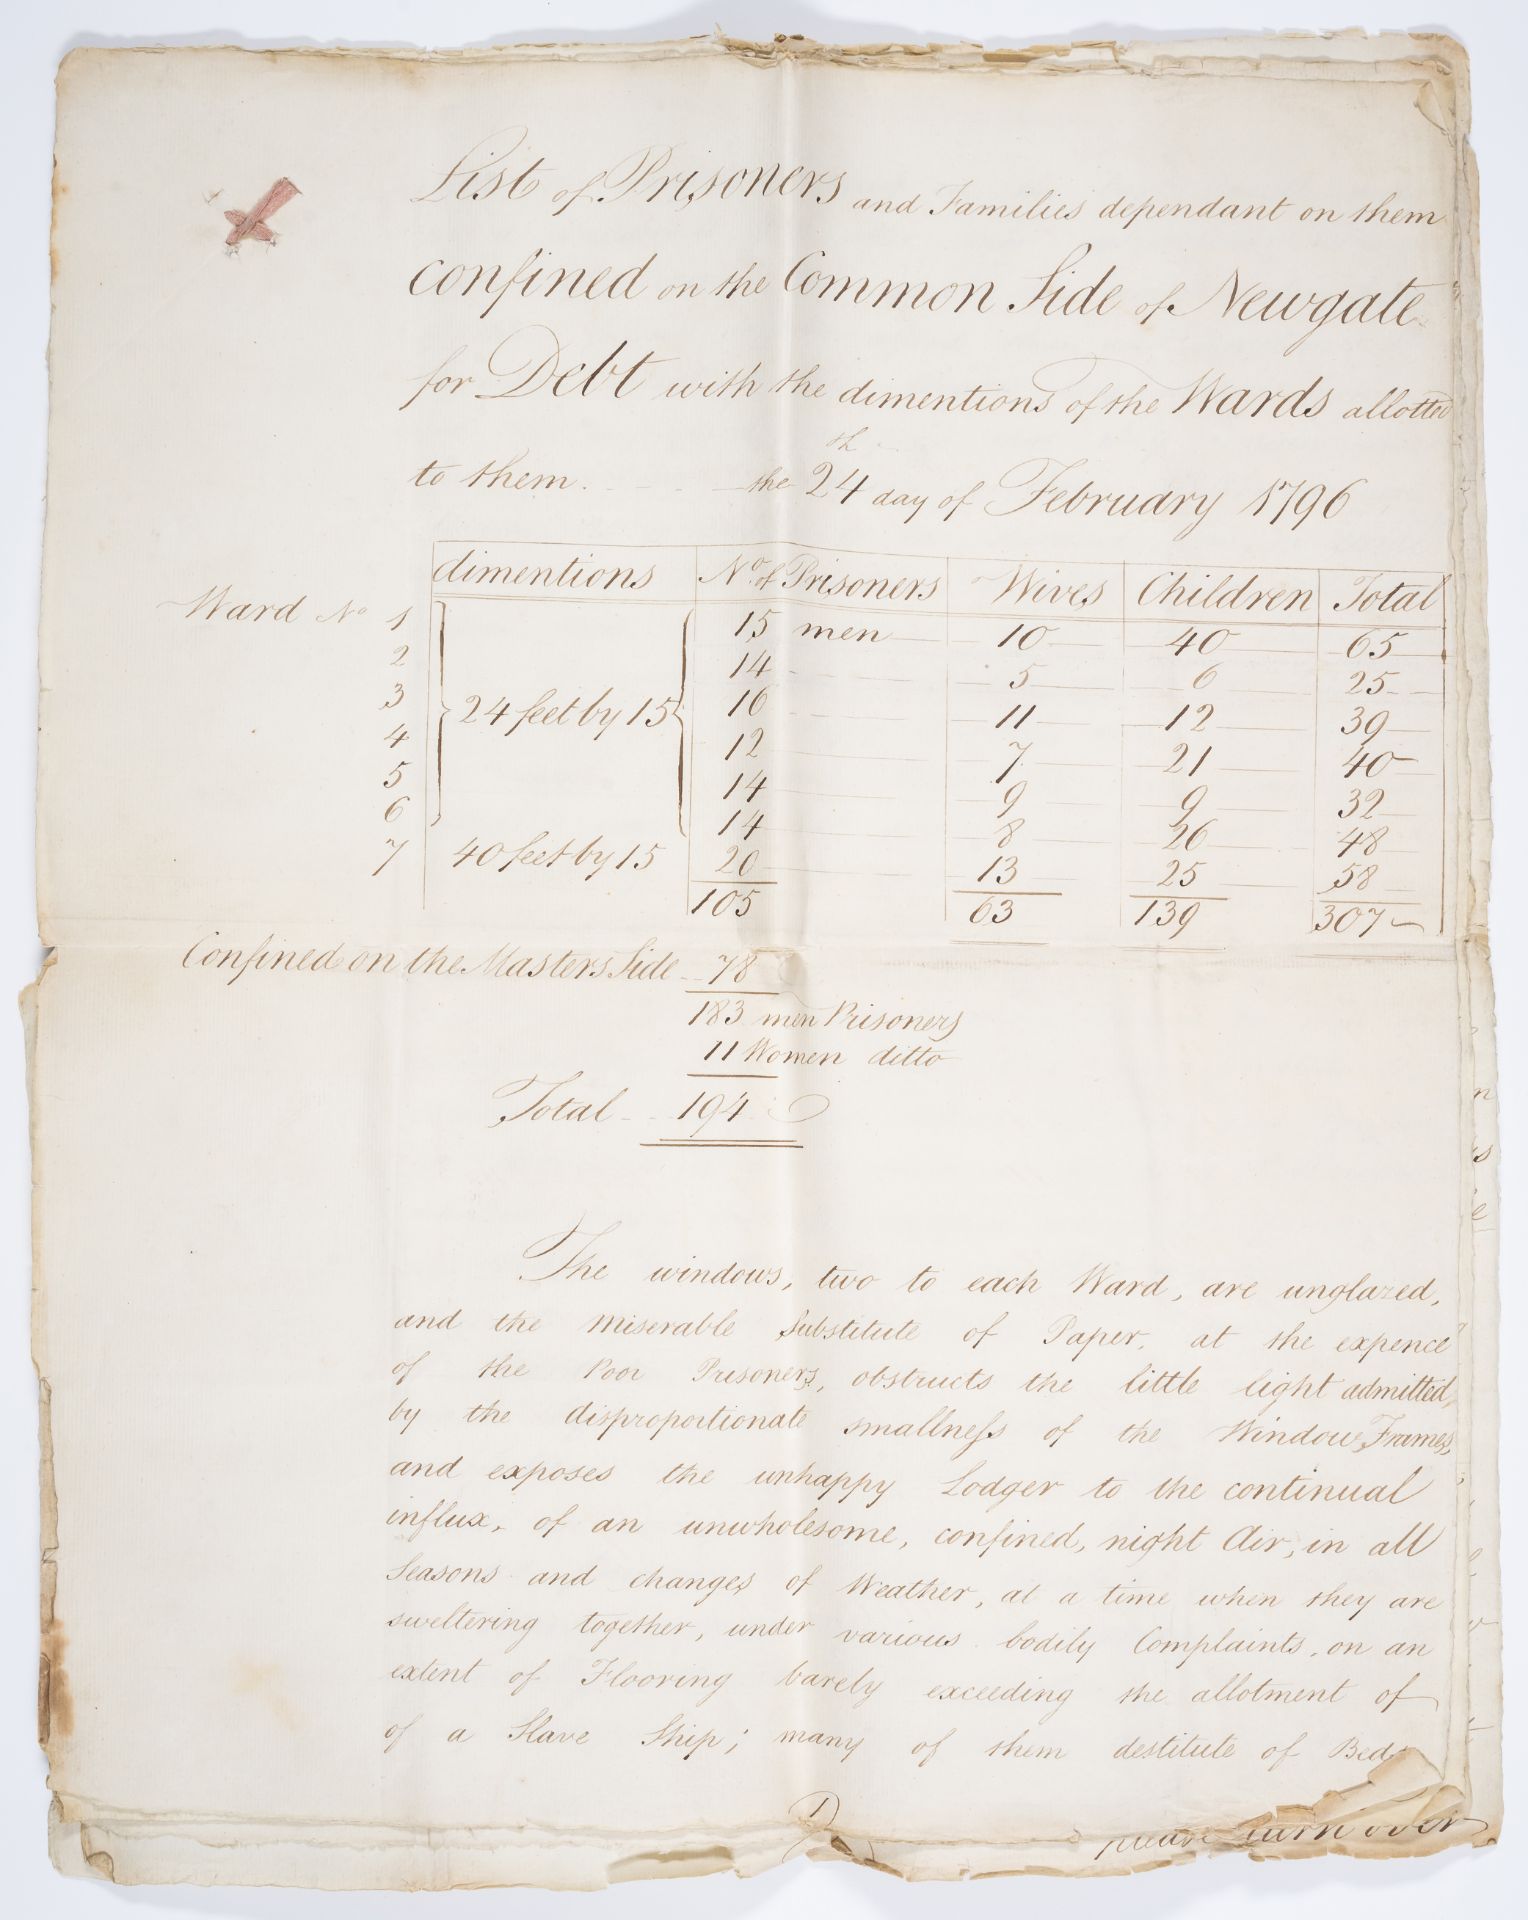 List of Prisoners and Families dependant on them
confined on the Common Side of Newgate
for Debt with the dimentions of the Wards allotted
to them. the 24th day of February 1796
dimentions No. of Prisoners Wives Children Total
Ward No 1 15 men 10 40 65
2 14 5 6 25
3 24 feet by 15 16 11 12 39
4 12 7 21 40
5 14 9 9 32
6 14 8 26 48
7 40 feet by 15 20 13 25 58
105 63 139 307
Confined on the Masters Side 78
183 men Prisoners
11 Women ditto
Total 194
The windows, two to each Ward, are unglazed,
and the miserable Substitute of Paper, at the expence
of the Poor Prisoners, obstructs the little light admitted,
by the disproportionate smallness of the Window Frames,
and exposes the unhappy Lodger to the continual
influx, of an unwholesome, confined, night Air, in all
Seasons and changes of Weather, at a time when they are
sweltering together, under various bodily Complaints, on an
extent of Flooring barely exceeding the allotment of
of a Slave Ship; many of them destitute of Beds
please turn over